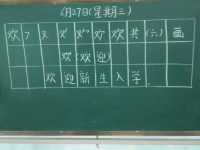 6月27日(星期三)
欢 フ ヌ 欢 欢 共(六)画
欢(欢迎)
欢迎新生入学.